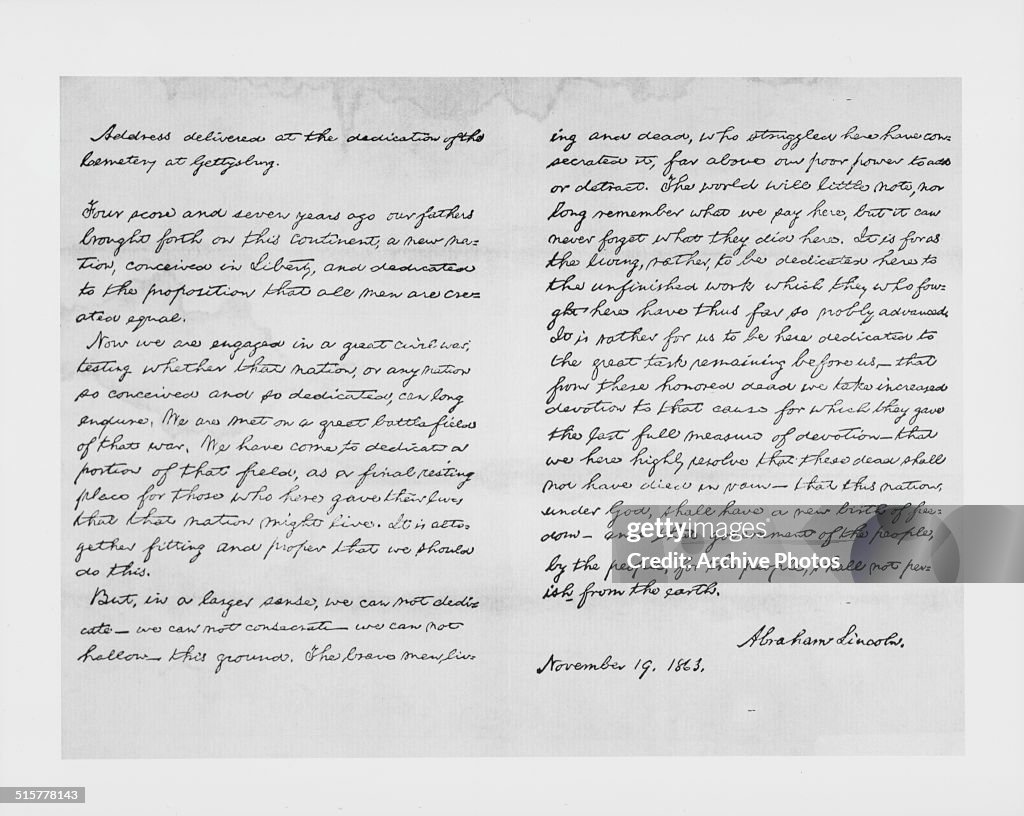 Address delivered at the dedication of the
Cemetery at Gettysburg.
Four score and seven years ago our fathers
brought forth on this continent, a new na-
tion, conceived in Liberty, and dedicated
to the proposition that all men are cre-
ated equal.
Now we are engaged in a great civil war,
testing whether that nation, or any nation
so conceived and so dedicated, can long
endure. We are met on a great battle field
of that war. We have come to dedicate a
portion of that field, as a final resting
place for those who here gave their lives
that that nation might live. It is alto-
gether fitting and proper that we should
do this.
But, in a larger sense, we can not dedi-
cate — we can not consecrate — we can not
hallow — this ground. The brave men, liv-
ing and dead, who struggled here have con-
secrated it, far above our poor power to add
or detract. The world will little note, nor
long remember what we say here, but it can
never forget what they did here. It is for us
the living, rather, to be dedicated here to
the unfinished work which they who fou-
ght here have thus far so nobly advanced.
It is rather for us to be here dedicated to
the great task remaining before us — that
from these honored dead we take increased
devotion to that cause for which they gave
the last full measure of devotion — that
we here highly resolve that these dead shall
not have died in vain — that this nation,
under God, shall have a new birth of free-
dom — and that government of the people,
by the people, for the people, shall not per-
ish from the earth.
Abraham Lincoln.
November 19. 1863.
gettyimages
Credit: Archive Photos
515778143